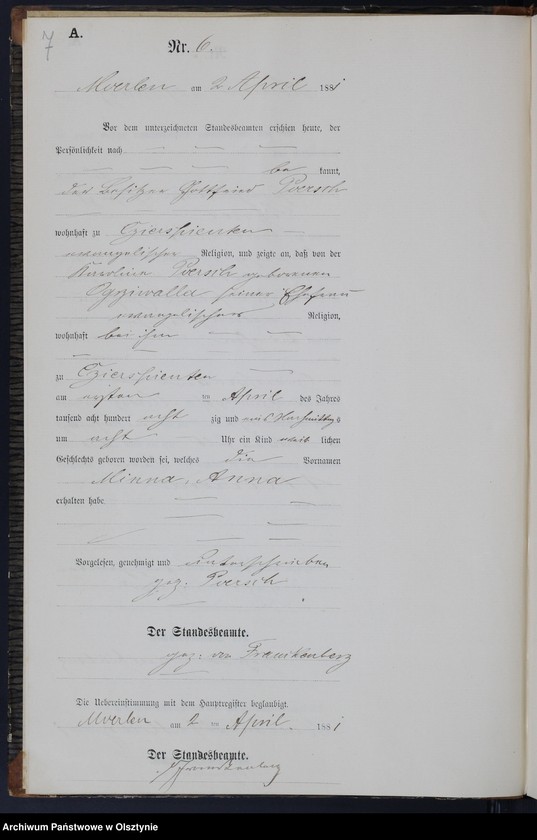 7
A.
Nr. 6.
Moerlen am 2 April 1881
Vor dem unterzeichneten Standesbeamten erschien heute, der
Persönlichkeit nach
be kannt,
der Besitzer Gottfried Poersch
wohnhaft zu Czierspienten
evangelischer Religion, und zeigte an, daß von der
Karoline Poersch geborenen
Ogrziwalla seiner Ehefrau
evangelischer Religion,
wohnhaft bei ihm
zu Czierspienten
am ersten April des Jahres
tausend acht hundert acht zig und eins Nachmittags
um acht Uhr ein Kind weib lichen
Geschlechts geboren worden sei, welches die Vornamen
Minna, Anna
erhalten habe
Vorgelesen, genehmigt und unterschrieben
gez: Poersch
Der Standesbeamte.
gez: von Frankenberg
Die Uebereinstimmung mit dem Hauptregister beglaubigt.
Moerlen am 2 ten April. 1881
Der Standesbeamte.
Frankenberg
Archiwum Państwowe w Olsztynie